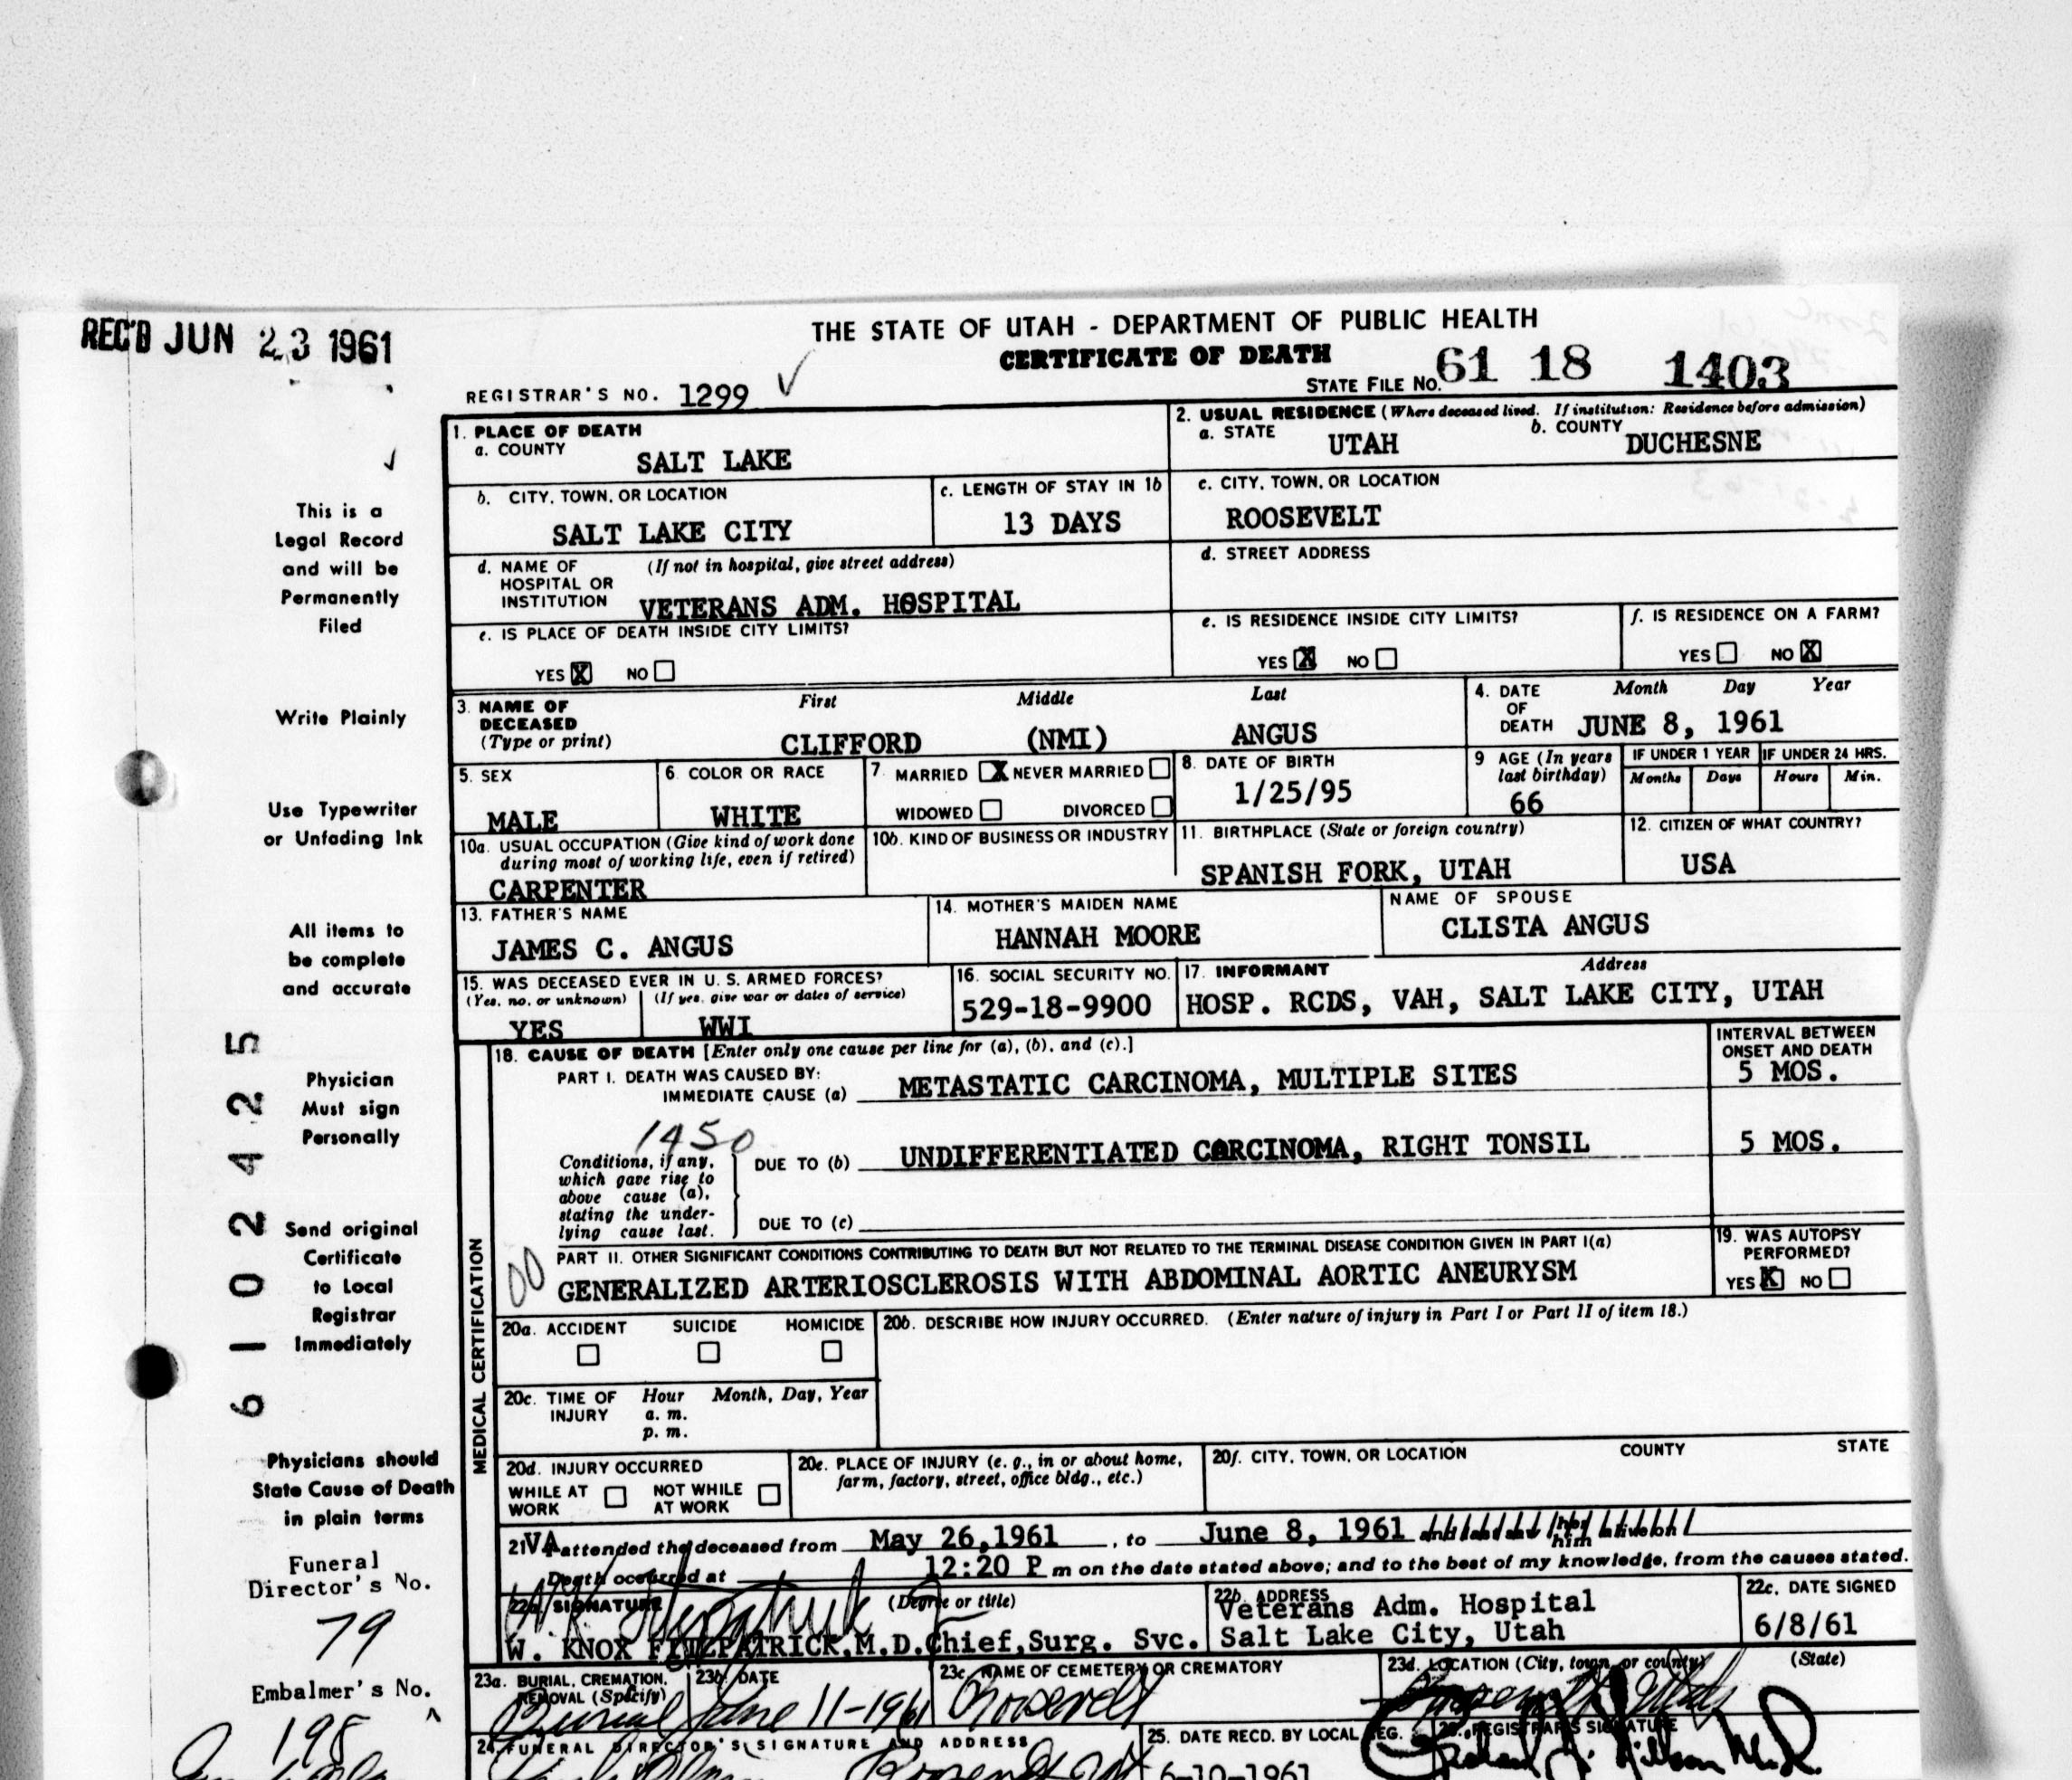 REC'D JUN 23 1961
THE STATE OF UTAH - DEPARTMENT OF PUBLIC HEALTH
CERTIFICATE OF DEATH
REGISTRAR'S NO. 1299
STATE FILE NO. 61 18 1403
1. PLACE OF DEATH
a. COUNTY
SALT LAKE
2. USUAL RESIDENCE (Where deceased lived. If institution: Residence before admission)
a. STATE
UTAH
b. COUNTY
DUCHESNE
b. CITY, TOWN, OR LOCATION
SALT LAKE CITY
c. LENGTH OF STAY IN 1b
13 DAYS
c. CITY, TOWN, OR LOCATION
ROOSEVELT
d. NAME OF HOSPITAL OR INSTITUTION
(If not in hospital, give street address)
VETERANS ADM. HOSPITAL
d. STREET ADDRESS
e. IS PLACE OF DEATH INSIDE CITY LIMITS?
YES X NO
e. IS RESIDENCE INSIDE CITY LIMITS?
YES X NO
f. IS RESIDENCE ON A FARM?
YES NO X
3. NAME OF DECEASED
(Type or print)
First Middle Last
CLIFFORD (NMI) ANGUS
4. DATE OF DEATH
Month Day Year
JUNE 8, 1961
5. SEX
MALE
6. COLOR OR RACE
WHITE
7. MARRIED X NEVER MARRIED
WIDOWED DIVORCED
8. DATE OF BIRTH
1/25/95
9 AGE (In years last birthday)
66
IF UNDER 1 YEAR
Months Days
IF UNDER 24 HRS.
Hours Min.
10a. USUAL OCCUPATION (Give kind of work done during most of working life, even if retired)
CARPENTER
10b. KIND OF BUSINESS OR INDUSTRY
11. BIRTHPLACE (State or foreign country)
SPANISH FORK, UTAH
12. CITIZEN OF WHAT COUNTRY?
USA
13. FATHER'S NAME
JAMES C. ANGUS
14. MOTHER'S MAIDEN NAME
HANNAH MOORE
NAME OF SPOUSE
CLISTA ANGUS
15. WAS DECEASED EVER IN U. S. ARMED FORCES?
(Yes, no, or unknown) (If yes, give war or dates of service)
YES WWI
16. SOCIAL SECURITY NO.
529-18-9900
17. INFORMANT Address
HOSP. RCDS, VAH, SALT LAKE CITY, UTAH
MEDICAL CERTIFICATION
18. CAUSE OF DEATH [Enter only one cause per line for (a), (b), and (c).]
INTERVAL BETWEEN ONSET AND DEATH
PART I. DEATH WAS CAUSED BY:
IMMEDIATE CAUSE (a) METASTATIC CARCINOMA, MULTIPLE SITES 5 MOS.
1450
Conditions, if any, which gave rise to above cause (a), stating the underlying cause last.
DUE TO (b) UNDIFFERENTIATED CARCINOMA, RIGHT TONSIL 5 MOS.
DUE TO (c)
PART II. OTHER SIGNIFICANT CONDITIONS CONTRIBUTING TO DEATH BUT NOT RELATED TO THE TERMINAL DISEASE CONDITION GIVEN IN PART I(a)
00 GENERALIZED ARTERIOSCLEROSIS WITH ABDOMINAL AORTIC ANEURYSM
19. WAS AUTOPSY PERFORMED?
YES X NO
20a. ACCIDENT SUICIDE HOMICIDE
20b. DESCRIBE HOW INJURY OCCURRED. (Enter nature of injury in Part I or Part II of item 18.)
20c. TIME OF INJURY
Hour Month, Day, Year
a. m.
p. m.
20d. INJURY OCCURRED
WHILE AT WORK NOT WHILE AT WORK
20e. PLACE OF INJURY (e. g., in or about home, farm, factory, street, office bldg., etc.)
20f. CITY, TOWN, OR LOCATION COUNTY STATE
21 VA attended the deceased from May 26,1961, to June 8, 1961 and last saw her him alive on
Death occurred at 12:20 P m on the date stated above; and to the best of my knowledge, from the causes stated.
22a. SIGNATURE (Degree or title)
W. KNOX FITZPATRICK,M.D.Chief,Surg. Svc.
22b. ADDRESS
Veterans Adm. Hospital
Salt Lake City, Utah
22c. DATE SIGNED
6/8/61
23a. BURIAL, CREMATION, REMOVAL (Specify)
Burial
23b. DATE
June 11-1961
23c. NAME OF CEMETERY OR CREMATORY
Roosevelt
23d. LOCATION (City, town, or county) (State)
24. FUNERAL DIRECTOR'S SIGNATURE AND ADDRESS
25. DATE RECD. BY LOCAL REG.
6-10-1961
26. REGISTRAR'S SIGNATURE
This is a
Legal Record
and will be
Permanently
Filed
Write Plainly
Use Typewriter
or Unfading Ink
All items to
be complete
and accurate
Physician
Must sign
Personally
Send original
Certificate
to Local
Registrar
Immediately
Physicians should
State Cause of Death
in plain terms
Funeral
Director's No.
79
Embalmer's No.
198
6102425